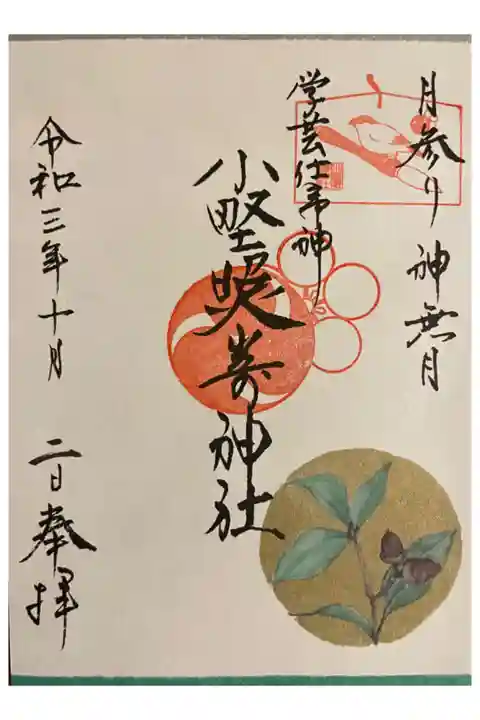 月参り 神無月
学芸仕事神
小野照崎神社
令和三年十月 二日奉拝